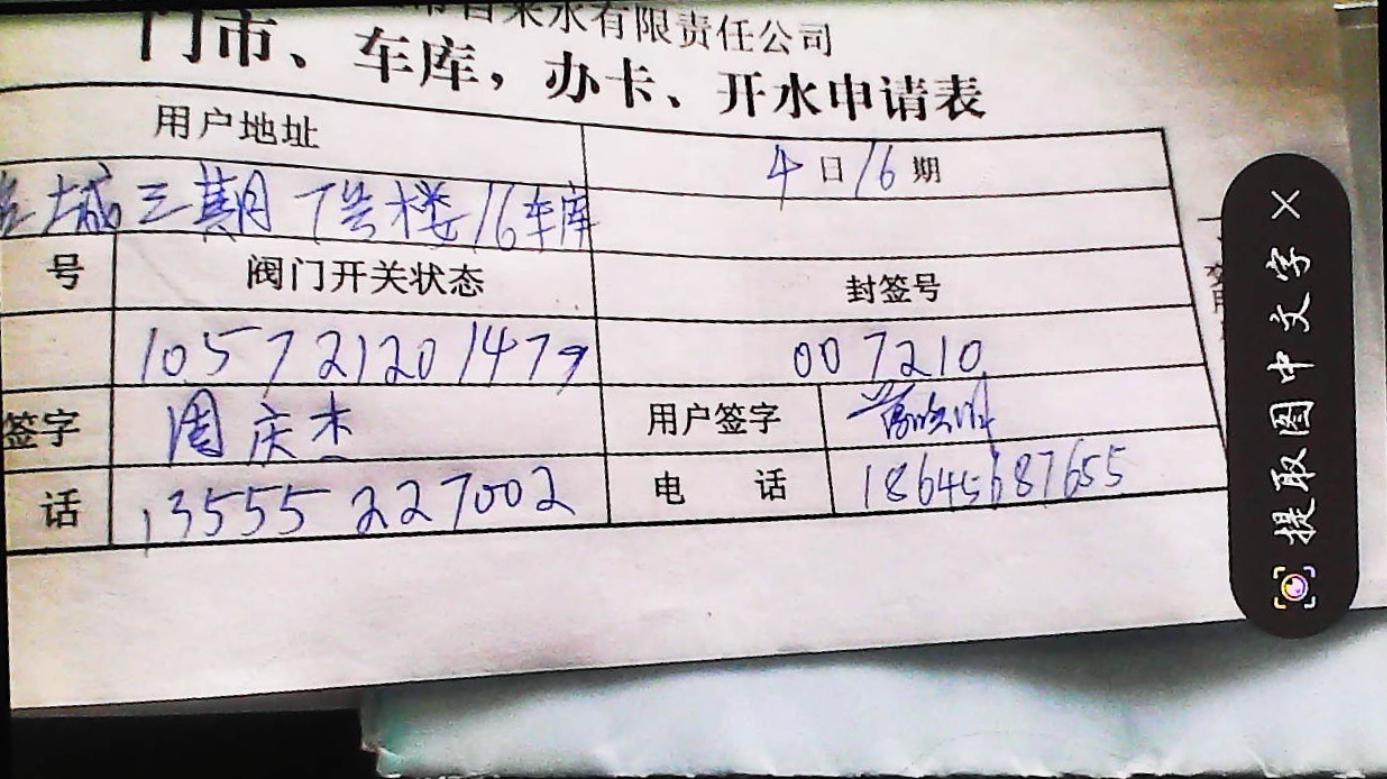 自来水有限责任公司
门市、车库，办卡、开水申请表
用户地址
4日16期
城三期7号楼16车库
号 阀门开关状态 封签号
105721201479 007210
签字 周庆杰 用户签字
话 13555227002 电 话 18645687655
提取图中文字 ×